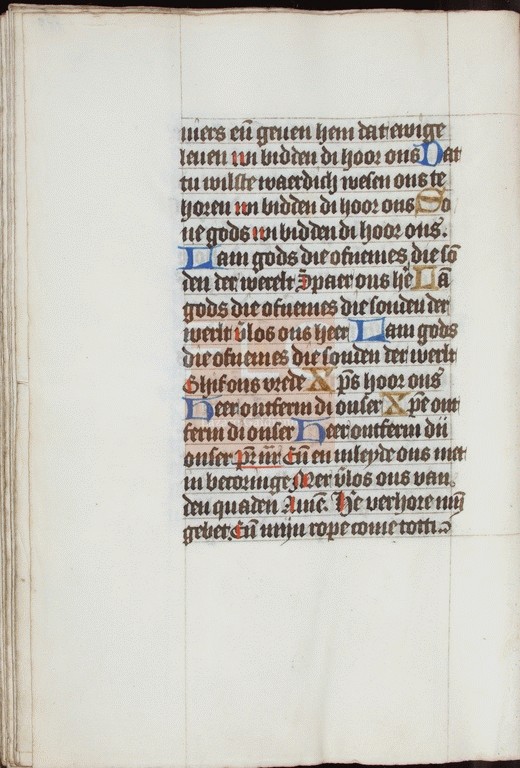 niers eñ geuen hem dat ewige
leuen wi bidden di hoor ons Dat
tu wilste waerdich wesen ons te
horen wi bidden di hoor ons So
ne gods wi bidden di hoor ons.
Lam gods die ofnemes die sō
den der werelt Spaer ons hē Lā
gods die ofnemes die sonden der
werlt v̄los ons heer Lam gods
die ofnemes die sonden der werlt
Ghif ons vrede Xp̄s hoor ons
Heer ontferm di onser Xp̄e ont
ferm di onser Heer ontferm dii
onser pr̄ nr̄ Eñ en inleyde ons niet
in becoringe Mer v̄los ons van
den quaden Amē. He verhore mijn
gebet. Eñ mijn rope come totti